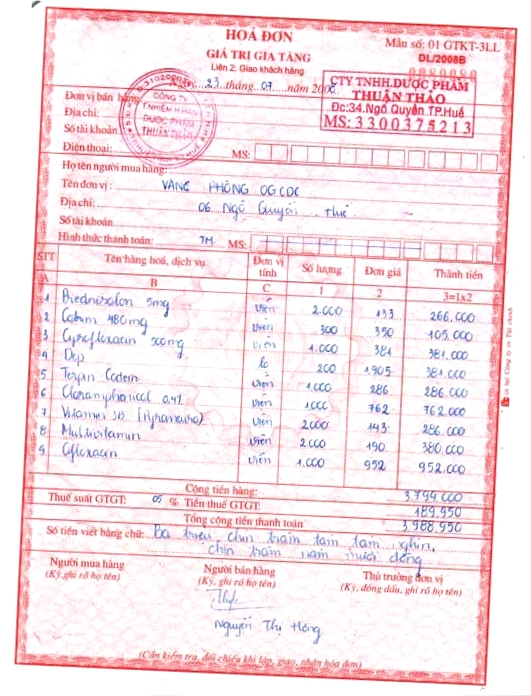 HOÁ ĐƠN
GIÁ TRỊ GIA TĂNG
Liên 2: Giao khách hàng
Mẫu số: 01 GTKT-3LL
DL/2008B
Ngày 23 tháng 07 năm 2008
CTY TNHH.DƯỢC PHẨM
THUẬN THẢO
Đc:34.Ngô Quyền TP.Huế
MS: 3300375213
CÔNG TY
T.NHIỆM H.HẠN
DƯỢC PHẨM
THUẬN THẢO
Đơn vị bán hàng
Địa chỉ:
Số tài khoản
Điện thoại: MS:
Họ tên người mua hàng:
Tên đơn vị: VĂNG PHÒNG OGCDC
Địa chỉ: 06 Ngô Quyền Huế
Số tài khoản
Hình thức thanh toán: TM. MS:
STT Tên hàng hoá, dịch vụ Đơn vị tính Số lượng Đơn giá Thành tiền
A B C 1 2 3=1x2
1 Prednisolon 5mg viên 2.000 133 266.000
2 Cotrim 480mg viên 300 350 105.000
3 Ciprofloxacin 500mg viên 1.000 381 381.000
4 Dep lo 200 1905 381.000
5 Terpin Codein viên 1.000 286 286.000
6 Cloramphenical 0.4% 1.000 762 762.000
7 Vitamin 3B viên 2000 143 286.000
8 Multivitamin viên 2.000 190 380.000
9 Ofloxacin viên 1.000 952 952.000
Cộng tiền hàng: 3.799.000
Thuế suất GTGT: 05 % Tiền thuế GTGT: 189.950
Tổng cộng tiền thanh toán 3.988.950
Số tiền viết bằng chữ: Ba triệu, chín trăm tám tám nghìn,
chín trăm năm mươi đồng
Người mua hàng Người bán hàng Thủ trưởng đơn vị
(Ký, ghi rõ họ tên) (Ký, ghi rõ họ tên) (Ký, đóng dấu, ghi rõ họ tên)
Nguyễn Thị Hồng
(Cần kiểm tra, đối chiếu khi lập, giao, nhận hóa đơn)